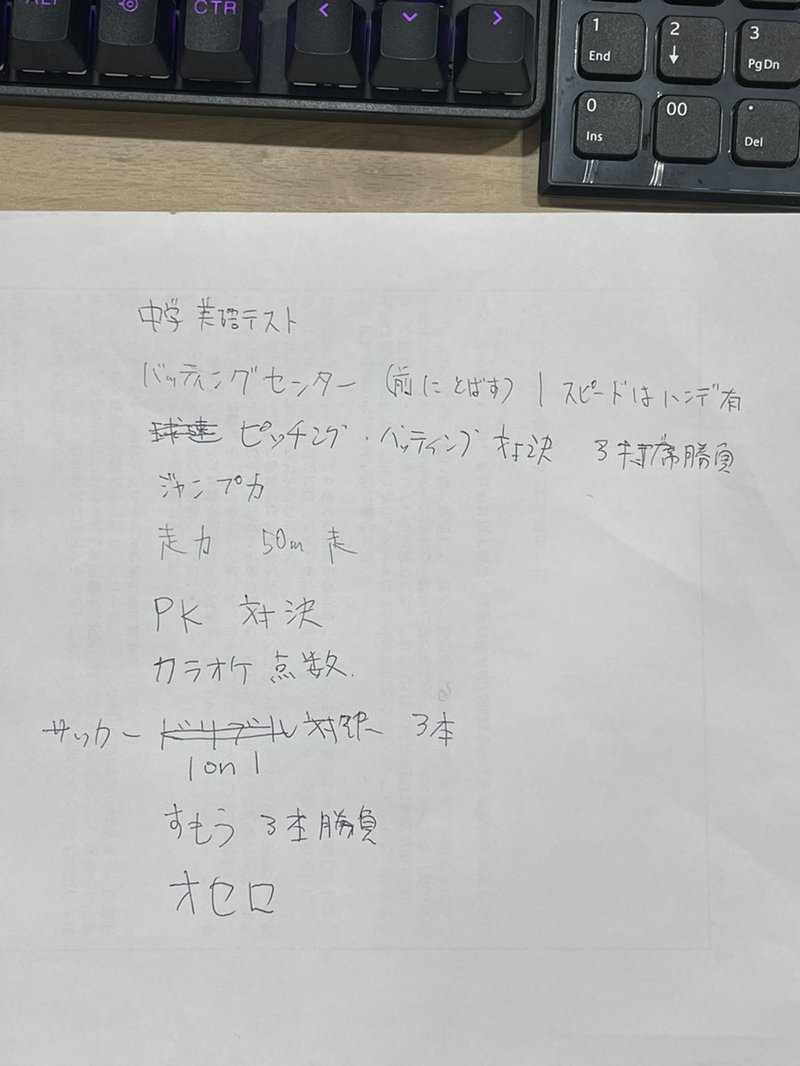 CTR
<
>
1
End
2
↓
3
PgDn
0
Ins
00
.
Del
中学 英語テスト
バッティングセンター (前にとばす) | スピードはハンデ有
球速 ピッチング・バッティング 対決 3打席勝負
ジャンプ力
走力 50m 走
PK 対決
カラオケ 点数.
サッカー ドリブル 対決 3本
1 on 1
すもう 3本勝負
オセロ